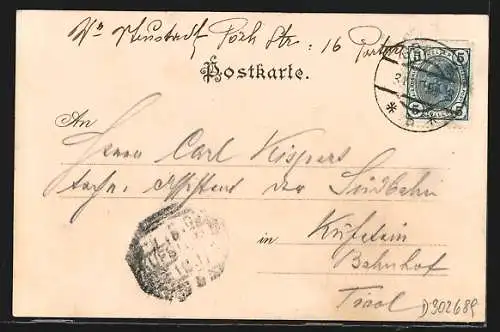 Wr Neustadt, Pöck Str: 16 Parterre
Postkarte.
5 5
5 5
An
Herrn Carl Kispert
techn. Assistent der Südbahn
in Kufstein
Bahnhof
Tirol
D302689